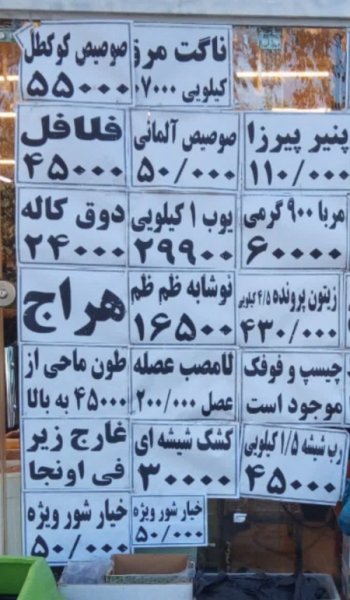 ناگت مرغ
کیلویی ۰۷۰۰۰
صوصیص کوکطل
۵۵۰۰۰
پنیر پیرزا
۱۱۰/۰۰۰
صوصیص آلمانی
۵۰/۰۰۰
فلافل
۴۵۰۰۰
مربا ۹۰۰ گرمی
۶۰۰۰۰
یوب ۱ کیلویی
۲۹۹۰۰
دوق کاله
۲۴۰۰۰
زیتون پرونده ۴/۵ کیلویی
۴۳۰/۰۰۰
نوشابه ظم ظم
۱۶۵۰۰
هراج
چیسپ و فوفک
موجود است
لامصب عصله
عصل ۲۰۰/۰۰۰
طون ماحی از
۴۵۰۰۰ به بالا
رب شیشه ۱/۵ کیلویی
۴۵۰۰۰
کشک شیشه ای
۳۰۰۰۰
غارج زیر
فی اونجا
خیار شور ویژه
۵۰/۰۰۰
خیار شور ویژه
۵۰/۰۰۰